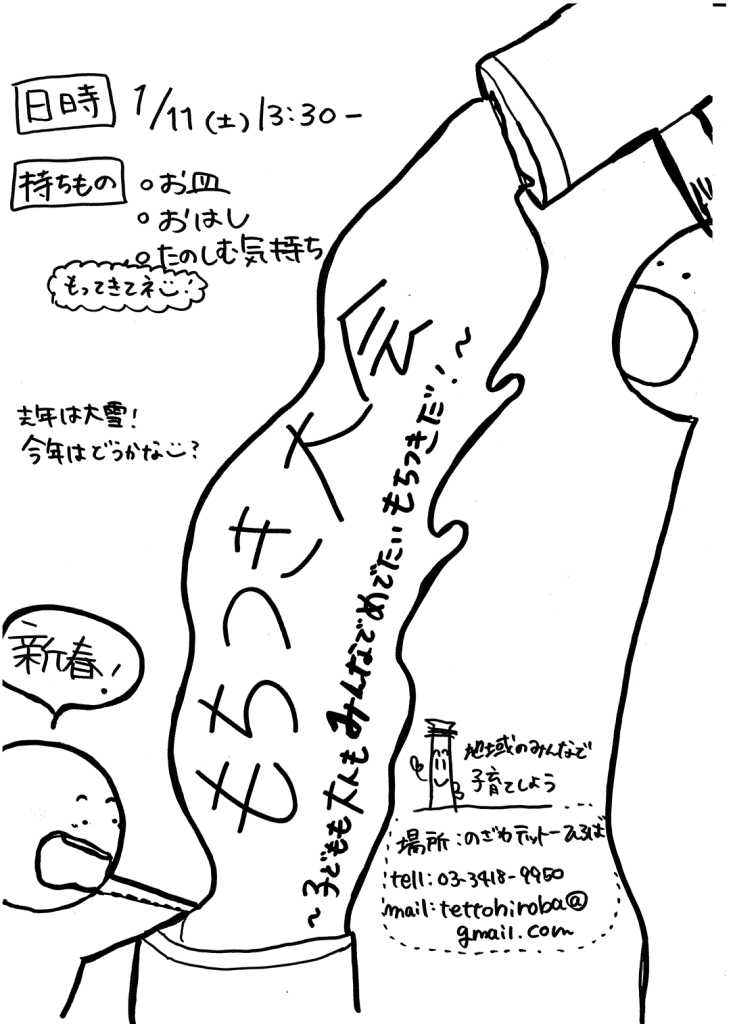 日時 1/11(土)13:30-
持ちもの
・お皿
・おはし
・たのしむ気持ち
もってきてネ!
去年は大雪!
今年はどうかな?
新春!
もちつき大会
～子どもも大人もみんなでめでたいもちつきだ!～
地域のみんなで
子育てしよう
場所:のざわテットーひろば
tell:03-3418-9950
mail:tettohiroba@
gmail.com